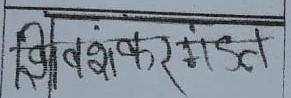 शिवशंकर मंडल